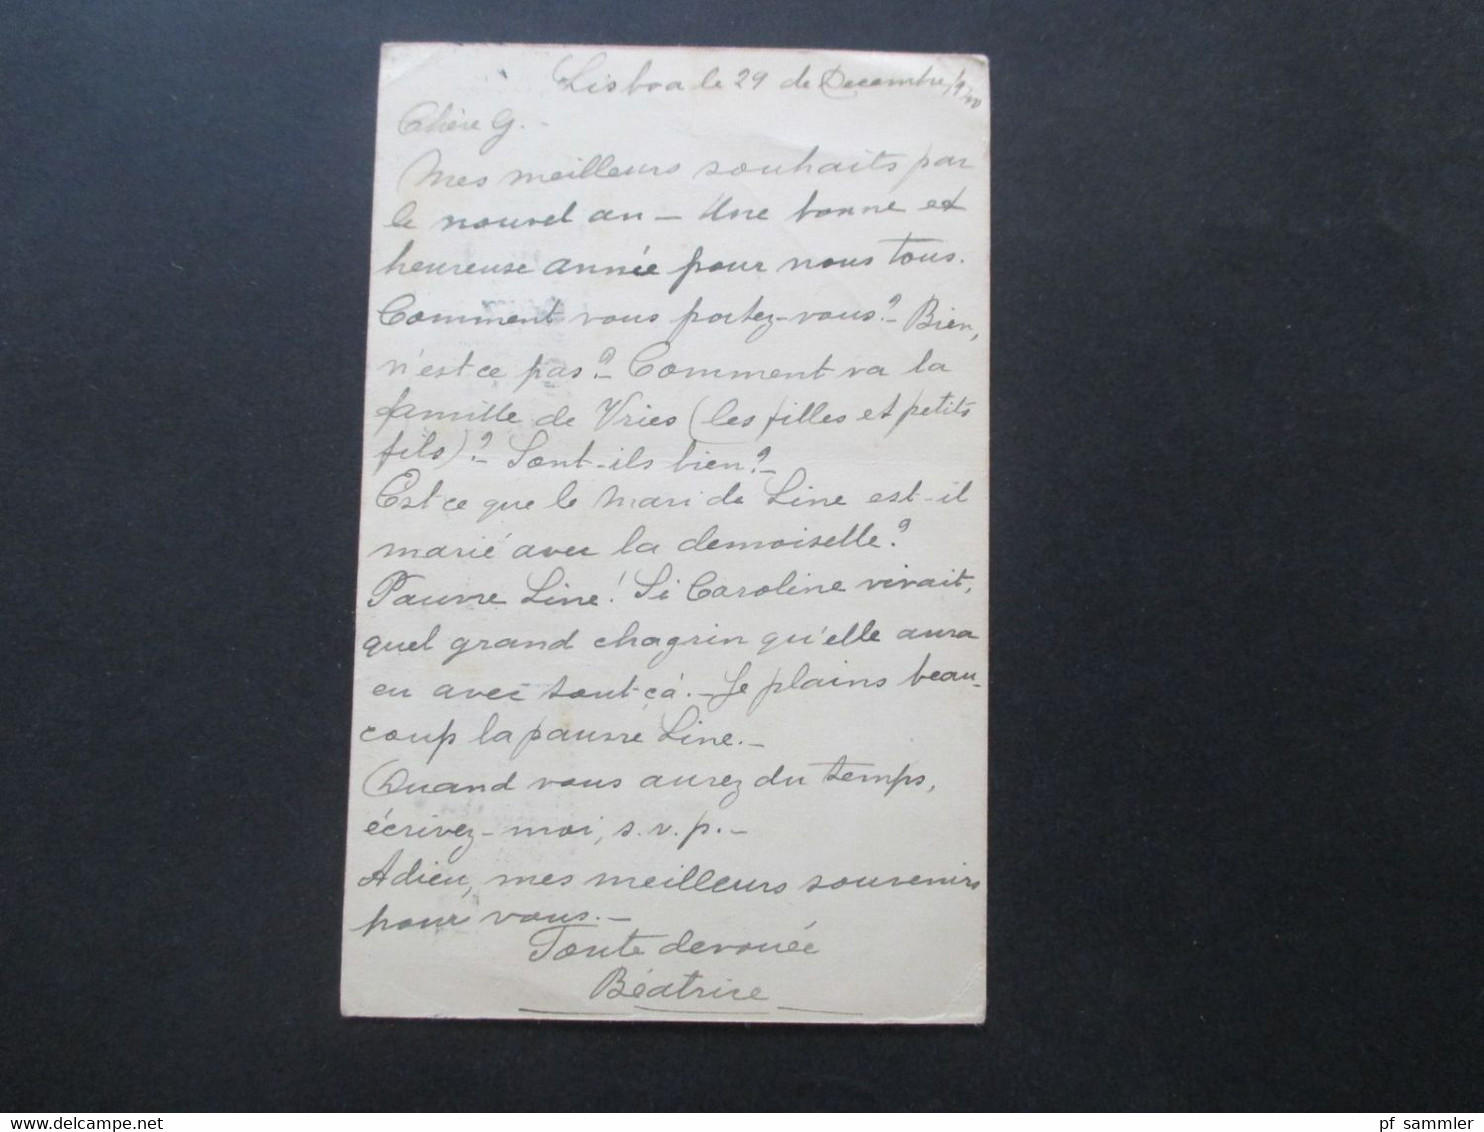 Lisboa le 29 de Decembre
Chère G.-
Mes meilleurs souhaits par
le nouvel an - Une bonne et
heureuse année pour nous tous.
Comment vous portez-vous?- Bien,
n'est ce pas?- Comment va la
famille de Vries (les filles et petits
fils)?- Sont-ils bien?-
Est ce que le mari de Line est-il
marié avec la demoiselle?
Pauvre Line! Si Caroline vivait,
quel grand chagrin qu'elle aura
eu avec tout-çà.- Je plains beau-
coup la pauvre Line.-
Quand vous aurez du temps,
écrivez-moi, s.v.p.-
Adieu, mes meilleurs souvenirs
pour vous.-
Toute devouée
Béatrice
www.delcampe.net
pf sammler